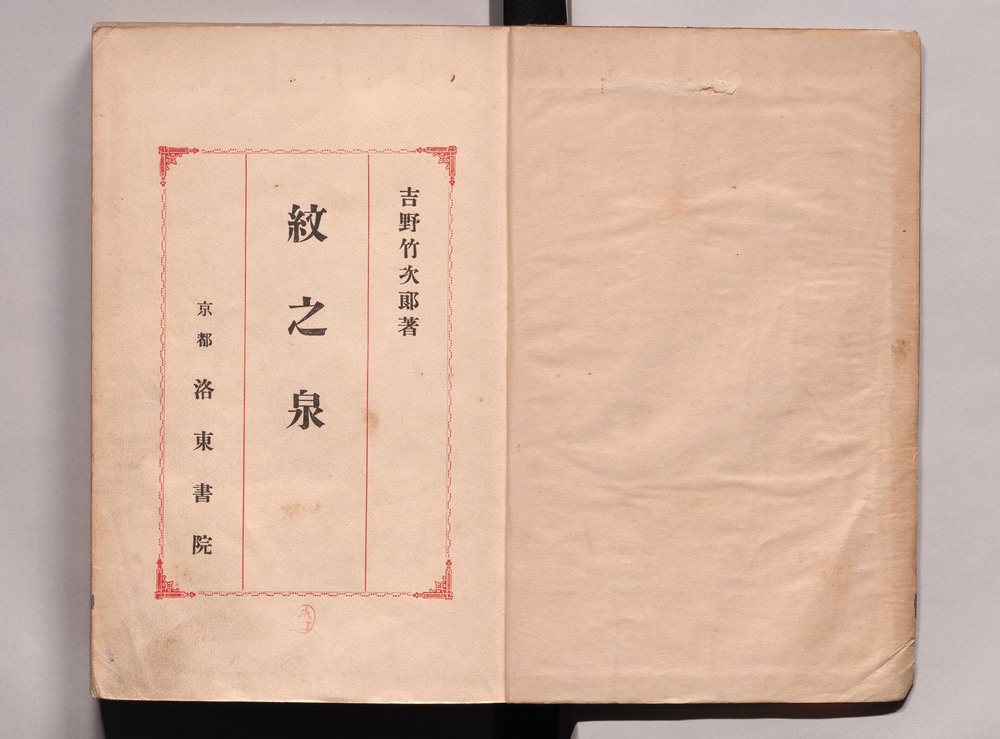 吉野竹次郎著
紋之泉
京都 洛東書院